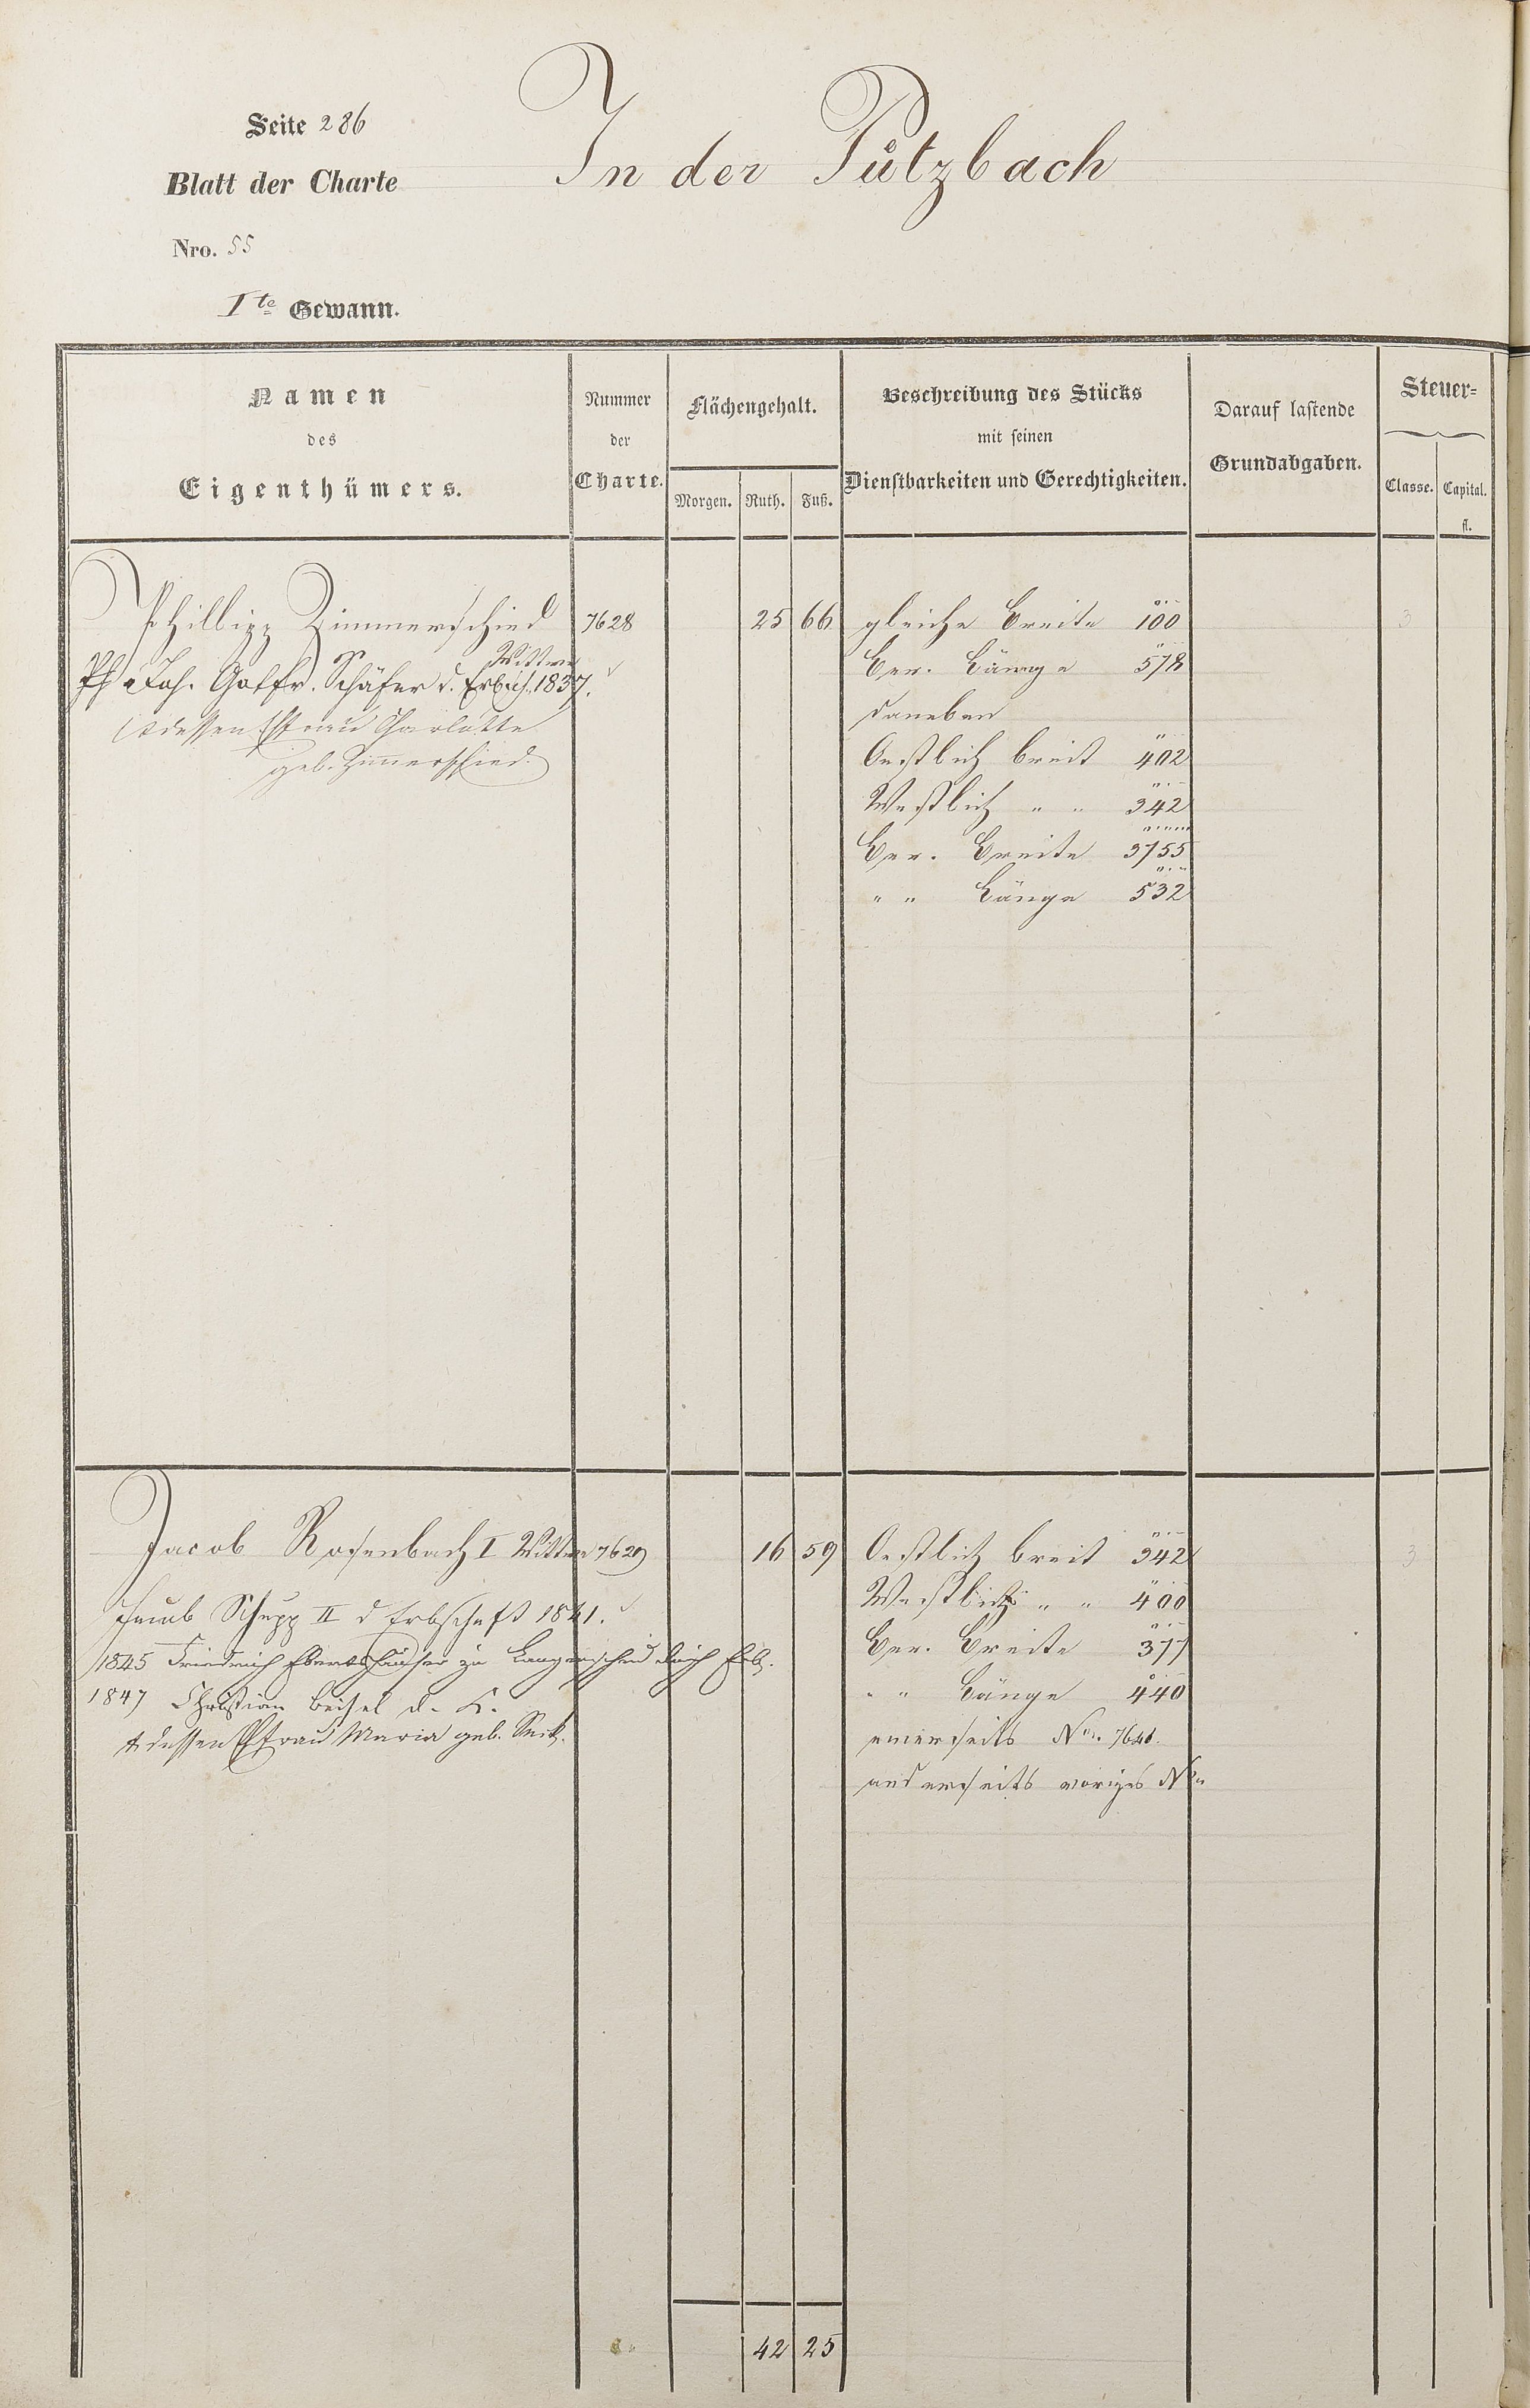 Seite 286
In der Pützbach
Blatt der Charte
Nro. 55
I te Gewann.
Namen
des
Eigenthümers.
Nummer
der
Charte.
Flächengehalt.
Morgen. Ruth. Fuß.
Beschreibung des Stücks
mit seinen
Dienstbarkeiten und Gerechtigkeiten.
Darauf lastende
Grundabgaben.
Steuer=
Classe. Capital.
fl.
Phillipp Zimmerschied 7628 25 66 gleiche Breite 100 3
Wittwe
Joh. Schäfer d. Erbsch. 1837. Ber. Länge 578
daneben
& dessen Ehfrau Charlotte
geb. Zimmerschied.
Oestlich breit 402
Westlich " " 342
Ber. Breite 3755
" " Länge 532
Jacob Rosenbach I Wittwe 7629 16 59 Oestlich breit 342 3
Jacob Schupp II d Erbschaft 1841. Westlich " " 400
1845 Friedrich Ebertshäuser zu Langenscheid durch Erb. Ber. Breite 377
1847 Christian Beisel d. K. " " Länge 440
& dessen Ehfrau Maria geb. einerseits Nro. 7640.
anderseits voriges Nro
42 25